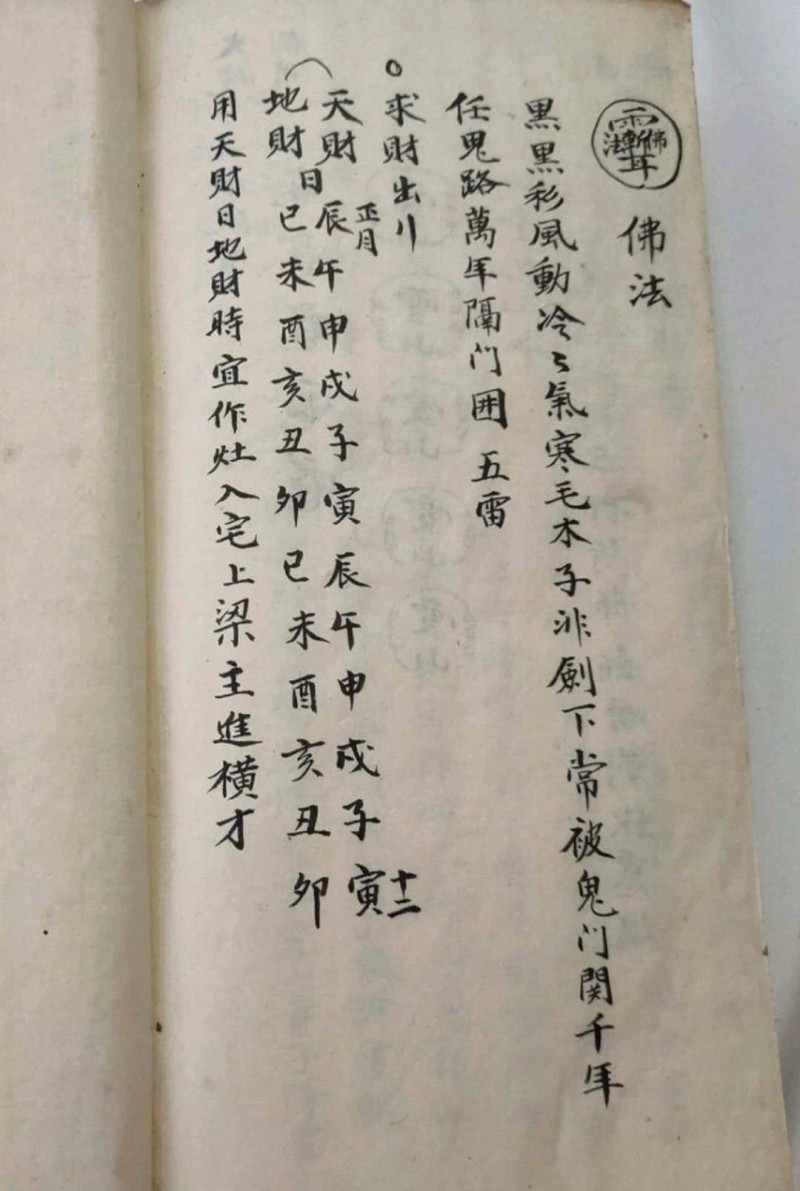 佛法
黑黑彩風動冷々氣寒毛木子非劍下常被鬼门関千年
任鬼路萬年隔门囲 五雷
○求財出川
天財日 正月辰午申戌子寅辰午申戌子寅十二
地財日 巳未酉亥丑卯巳未酉亥丑卯
用天財日地財時宜作灶入宅上梁主進橫才